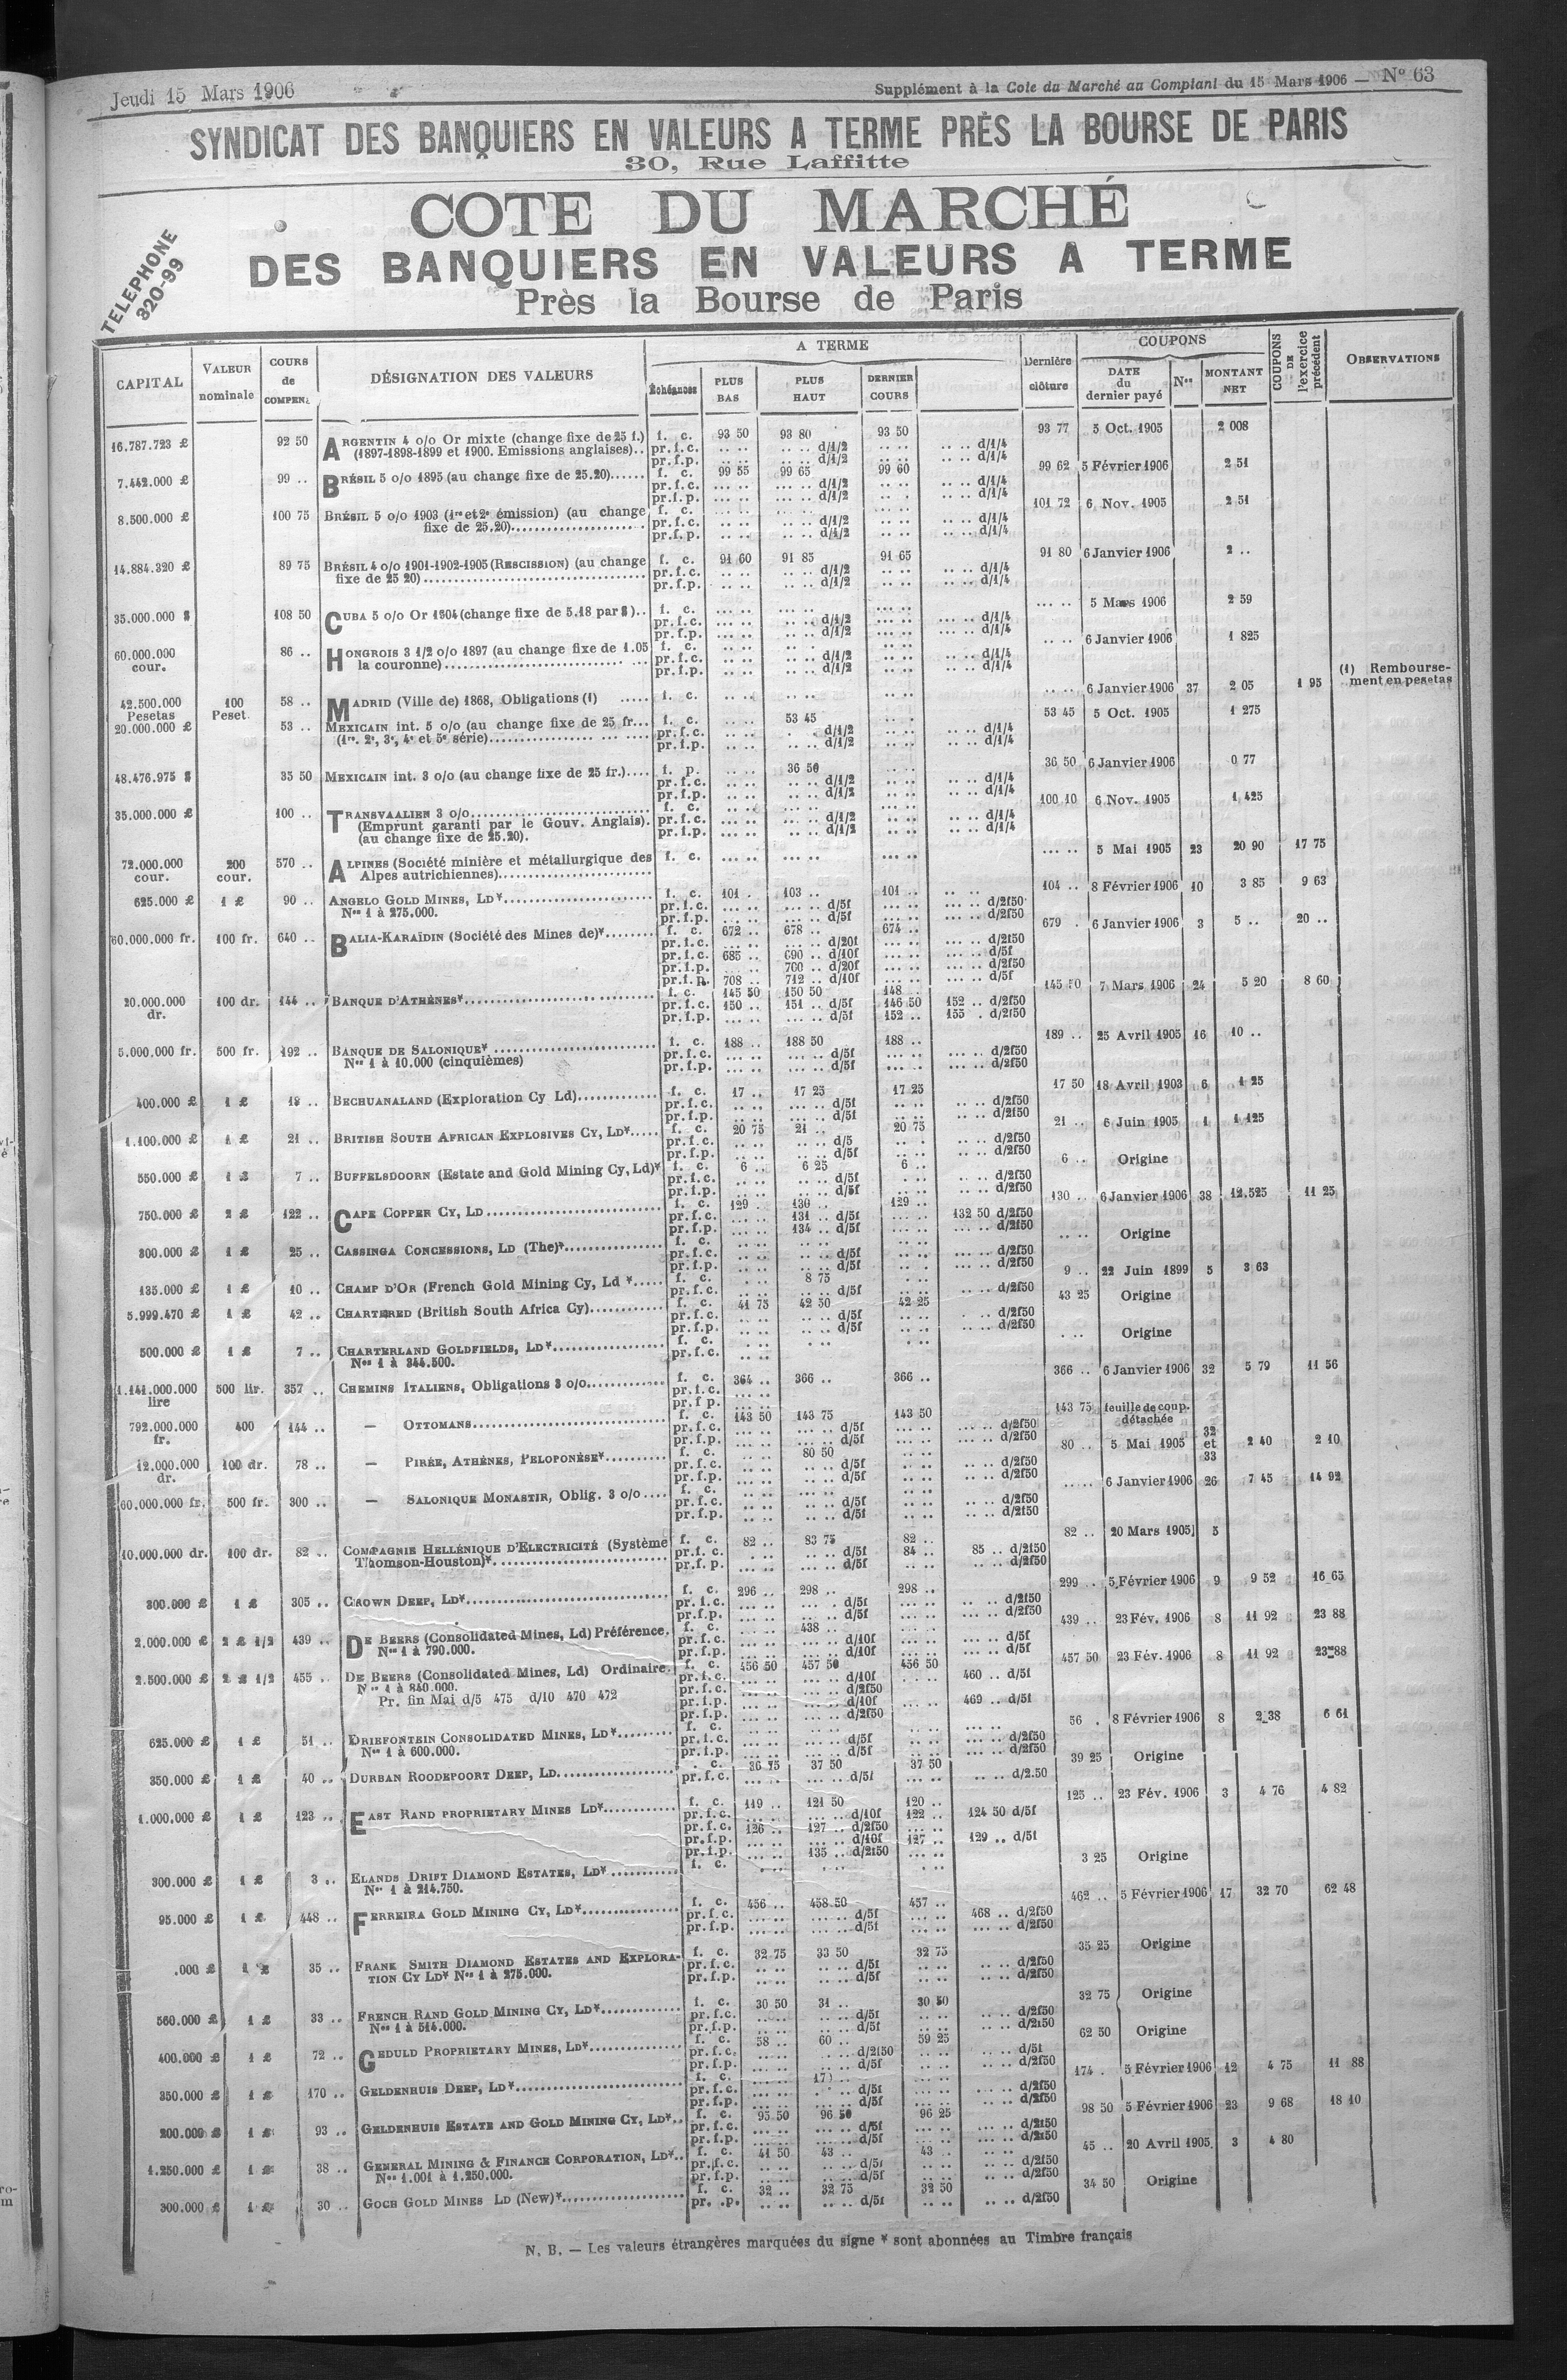 Jeudi 15 Mars 1906
Supplément à la Cote du Marché au Comptant du 15 Mars 1906 — N° 63
SYNDICAT DES BANQUIERS EN VALEURS A TERME PRÈS LA BOURSE DE PARIS
30, Rue Laffitte
TELEPHONE
320-99
COTE DU MARCHÉ
DES BANQUIERS EN VALEURS A TERME
Près la Bourse de Paris
CAPITAL | VALEUR nominale | COURS de COMPEN. | DÉSIGNATION DES VALEURS | A TERME | Échéances | PLUS BAS | PLUS HAUT | DERNIER COURS | Dernière clôture | COUPONS | DATE du dernier payé | Nos | MONTANT NET | COUPONS DE l'exercice précédent | OBSERVATIONS
16.787.723 £ 92 50 ARGENTIN 4 o/o Or mixte (change fixe de 25 f.) f. c. 93 50 93 80 93 50 93 77 5 Oct. 1905 2 008
(1897-1898-1899 et 1900. Emissions anglaises).. pr.f.c. .. .. .. .. d/1/2 .. .. .. .. d/1/4
pr.f.p. .. .. .. .. d/1/2 .. .. .. .. d/1/4
7.442.000 £ 99 .. BRÉSIL 5 o/o 1895 (au change fixe de 25.20)...... f. c. 99 55 99 65 99 60 99 62 5 Février 1906 2 51
pr.f.c. d/1/2 d/1/4
pr.f.p. d/1/2 d/1/4
8.500.000 £ 100 75 BRÉSIL 5 o/o 1903 (1re et 2e émission) (au change f. c. 101 72 6 Nov. 1905 2 51
fixe de 25.20)..... pr.f.c. d/1/2 d/1/4
pr.f.p. d/1/2 d/1/4
14.884.320 £ 89 75 BRÉSIL 4 o/o 1901-1902-1905 (RESCISSION) (au change f. c. 91 60 91 85 91 65 91 80 6 Janvier 1906 2 ..
fixe de 25 20)..... pr.f.c. d/1/2 d/1/4
pr.f.p. d/1/2 d/1/4
35.000.000 $ 108 50 CUBA 5 o/o Or 1904 (change fixe de 5.18 par $).. f. c. 5 Mars 1906 2 59
pr.f.c. d/1/2 d/1/4
pr.f.p. d/1/2 d/1/4
60.000.000 cour. 86 .. HONGROIS 3 1/2 o/o 1897 (au change fixe de 1.05 f. c. 6 Janvier 1906 1 825
la couronne)..... pr.f.c. d/1/2 d/1/4
pr.f.p. d/1/2 d/1/4
42.500.000 Pesetas 100 Peset. 58 .. MADRID (Ville de) 1868, Obligations (1) ..... f. c. 6 Janvier 1906 37 2 05 1 95 (1) Remboursement en pesetas
20.000.000 £ 53 .. MEXICAIN int. 5 o/o (au change fixe de 25 fr... f. c. 53 45 53 45 5 Oct. 1905 1 275
(1re, 2e, 3e, 4e et 5e série)..... pr.f.c. d/1/2 d/1/4
pr.f.p. d/1/2 d/1/4
48.476.975 $ 35 50 MEXICAIN int. 3 o/o (au change fixe de 25 fr.).... f. p. 36 50 36 50 6 Janvier 1906 0 77
pr.f.c. d/1/2 d/1/4
pr.f.p. d/1/2 d/1/4
35.000.000 £ 100 .. TRANSVAALIEN 3 o/o..... f. c. 100 10 6 Nov. 1905 1,425
(Emprunt garanti par le Gouv. Anglais). pr.f.c. d/1/2 d/1/4
(au change fixe de 25.20). pr.f.p. d/1/2 d/1/4
72.000.000 cour. 200 cour. 570 .. ALPINES (Société minière et métallurgique des f. c. 5 Mai 1905 23 20 90 17 75
Alpes autrichiennes).....
625.000 £ 1 £ 90 .. ANGELO GOLD MINES, LD*..... f. c. 101 . 103 .. 101 .. 104 .. 8 Février 1906 10 3 85 9 63
Nos 1 à 275.000. pr.f.c. d/5f d/2f50
pr.f.p. d/5f d/2f50
60.000.000 fr. 100 fr. 640 .. BALIA-KARAÏDIN (Société des Mines de)*........ f. c. 672 .. 678 .. 674 .. 679 . 6 Janvier 1906 3 5 .. 20 ..
pr.f.c. d/20f d/2f50
pr.f.c. 685 .. 690 .. d/10f d/5f
pr.f.p. 700 .. d/20f d/2f50
pr.f.p. 708 .. 712 .. d/10f d/5f
20.000.000 dr. 100 dr. 144 .. BANQUE D'ATHÈNES*..... f. c. 145 50 150 50 148 .. 145 50 7 Mars 1906 24 5 20 8 60
pr.f.c. 150 .. 151 .. d/5f 146 50 152 .. d/2f50
pr.f.p. d/5f 152 .. 155 . d/2f50
5.000.000 fr. 500 fr. 192 .. BANQUE DE SALONIQUE*..... f. c. 188 .. 188 50 188 .. 189 .. 25 Avril 1905 16 10 ..
Nos 1 à 10.000 (cinquièmes) pr.f.c. d/5f d/2f50
pr.f.p. d/5f d/2f50
400.000 £ 1 £ 18 .. BECHUANALAND (Exploration Cy Ld)............ f. c. 17 .. 17 25 17 25 17 50 18 Avril 1903 6 1 25
pr.f.c. d/5f d/2f50
pr.f.p. d/5f d/2f50
1.100.000 £ 1 £ 21 .. BRITISH SOUTH AFRICAN EXPLOSIVES CY, LD*..... f. c. 20 75 21 .. 20 75 21 .. 6 Juin 1905 1 1 125
pr.f.c. d/5 d/2f50
pr.f.p. d/2f50
550.000 £ 1 £ 7 .. BUFFELSDOORN (Estate and Gold Mining Cy, Ld)* f. c. 6 .. 6 25 6 .. 6 .. Origine
pr.f.c. d/5f d/2f50
pr.f.p. d/5f d/2f50
750.000 £ 2 £ 122 .. CAPE COPPER CY, LD..... f. c. 129 .. 130 .. 129 .. 130 .. 6 Janvier 1906 38 12.525 11 25
pr.f.c. 131 .. d/5f 132 50 d/2f50
pr.f.p. 134 .. d/5f d/2f50
300.000 £ 1 £ 25 .. CASSINGA CONCESSIONS, LD (The)*............... f. c. Origine
pr.f.c. d/5f d/2f50
pr.f.p. d/5f d/2f50
135.000 £ 1 £ 10 .. CHAMP D'OR (French Gold Mining Cy, Ld *..... f. c. 8 75 9 .. 22 Juin 1899 5 3 63
pr.f.c. d/5f d/2f50
5.999.470 £ 1 £ 42 .. CHARTERED (British South Africa Cy)........... f. c. 41 75 42 50 42 25 43 25 Origine
pr.f.c. d/5f d/2f50
pr.f.p. d/5f d/2f50
500.000 £ 1 £ 7 .. CHARTERLAND GOLDFIELDS, LD*..... f. c. Origine
Nos 1 à 344.500. pr.f.c.
1.141.000.000 lire 500 lir. 357 .. CHEMINS ITALIENS, Obligations 3 o/o............ f. c. 364 .. 366 .. 366 .. 366 .. 6 Janvier 1906 32 5 79 11 56
pr.f.c.
pr.f.p.
792.000.000 fr. 400 144 .. — OTTOMANS..... f. c. 143 50 143 75 143 50 143 75 feuille de coup. détachée
pr.f.c. d/5f d/2f50
pr.f.p. d/5f d/2f50
12.000.000 dr. 100 dr. 78 .. — PIRÉE, ATHÈNES, PELOPONÈSE*.......... f. c. 80 50 80 .. 5 Mai 1905 32 et 33 2 40 2 10
pr.f.c. d/5f d/2f50
pr.f.p. d/5f d/2f50
60.000.000 fr. 500 fr. 300 .. — SALONIQUE MONASTIR, Oblig. 3 o/o.... f. c. 6 Janvier 1906 26 7 45 14 92
pr.f.c. d/5f d/2f50
pr.f.p. d/5f d/2f50
10.000.000 dr. 100 dr. 82 .. COMPAGNIE HELLÉNIQUE D'ELECTRICITÉ (Système f. c. 82 .. 83 75 82 .. 82 .. 20 Mars 1905 5
Thomson-Houston)*..... pr.f.c. d/5f 84 .. 85 .. d/2f50
pr.f.p. d/5f d/2f50
300.000 £ 1 £ 305 .. CROWN DEEP, LD*..... f. c. 296 .. 298 .. 298 .. 299 .. 5 Février 1906 9 9 52 16 65
pr.f.c. d/5f d/2f50
pr.f.p. d/5f d/2f50
2.000.000 £ 2 £ 1/2 439 .. DE BEERS (Consolidated Mines, Ld) Préférence. f. c. 438 .. 439 .. 23 Fév. 1906 8 11 92 23 88
Nos 1 à 790.000. pr.f.c. d/10f d/5f
pr.f.p. d/10f d/5f
2.500.000 £ 2 £ 1/2 455 .. DE BEERS (Consolidated Mines, Ld) Ordinaire. f. c. 456 50 457 50 456 50 457 50 23 Fév. 1906 8 11 92 23 88
Nos 1 à 840.000. pr.f.c. d/10f 460 .. d/5f
pr.f.c. d/2f50
Pr. fin Mai d/5 475 d/10 470 472 pr.f.p. d/10f 469 .. d/5f
pr.f.p. d/2f50
625.000 £ 1 £ 51 .. DRIEFONTEIN CONSOLIDATED MINES, LD*......... f. c. 56 . 8 Février 1906 8 2 38 6 61
Nos 1 à 600.000. pr.f.c. d/5f d/2f50
pr.f.p. d/5f d/2f50
350.000 £ 1 £ 40 .. DURBAN ROODEPOORT DEEP, LD..... . c. 36 75 37 50 37 50 39 25 Origine
pr.f.c. d/5f d/2.50
1.000.000 £ 1 £ 123 .. EAST RAND PROPRIETARY MINES LD*............ f. c. 119 .. 121 50 120 .. 125 .. 23 Fév. 1906 3 4 76 4 82
pr.f.c. d/10f 122 .. 124 50 d/5f
pr.f.c. 126 .. 127 .. d/2f50
pr.f.p. d/10f 127 .. 129 .. d/5f
pr.f.p. 135 .. d/2f50
300.000 £ 1 £ 3 .. ELANDS DRIFT DIAMOND ESTATES, LD*........... f. c. 3 25 Origine
Nos 1 à 214.750.
95.000 £ 1 £ 448 .. FERREIRA GOLD MINING CY, LD*..... f. c. 456 .. 458 50 457 .. 462 .. 5 Février 1906 17 32 70 62 48
pr.f.c. d/5f 468 .. d/2f50
pr.f.p. d/5f d/2f50
.000 £ 1 £ 35 .. FRANK SMITH DIAMOND ESTATES AND EXPLORA- f. c. 32 75 33 50 32 75 35 25 Origine
TION CY LD* Nos 1 à 275.000. pr.f.c. d/5f d/2f50
pr.f.p. d/5f d/2f50
560.000 £ 1 £ 33 .. FRENCH RAND GOLD MINING CY, LD*............ f. c. 30 50 31 .. 30 50 32 75 Origine
Nos 1 à 514.000. pr.f.c. d/5f d/2f50
pr.f.p. d/5f d/2f50
400.000 £ 1 £ 72 .. GEDULD PROPRIETARY MINES, LD*.............. f. c. 58 .. 60 .. 59 25 62 50 Origine
pr.f.c. d/2f50 d/5f
pr.f.p. d/5f d/2f50
350.000 £ 1 £ 170 .. GELDENHUIS DEEP, LD*..... f. c. 174 . 5 Février 1906 12 4 75 11 88
pr.f.c. d/5f d/2f50
pr.f.p. d/5f d/2f50
200.000 £ 1 £ 93 .. GELDENHUIS ESTATE AND GOLD MINING CY, LD*.. f. c. 95 50 96 50 96 25 98 50 5 Février 1906 23 9 68 18 10
pr.f.c. d/5f d/2f50
pr.f.p. d/5f d/2f50
1.250.000 £ 1 £ 38 .. GENERAL MINING & FINANCE CORPORATION, LD*.. f. c. 41 50 43 .. 43 .. 45 .. 20 Avril 1905 3 4 80
Nos 1.001 à 1.250.000. pr.f.c. d/5f d/2f50
pr.f.p. d/5f d/2f50
300.000 £ 1 £ 30 .. GOCH GOLD MINES LD (New)*..... f. c. 32 .. 32 75 32 50 34 50 Origine
pr. .p. d/5f d/2f50
N. B. — Les valeurs étrangères marquées du signe * sont abonnées au Timbre français